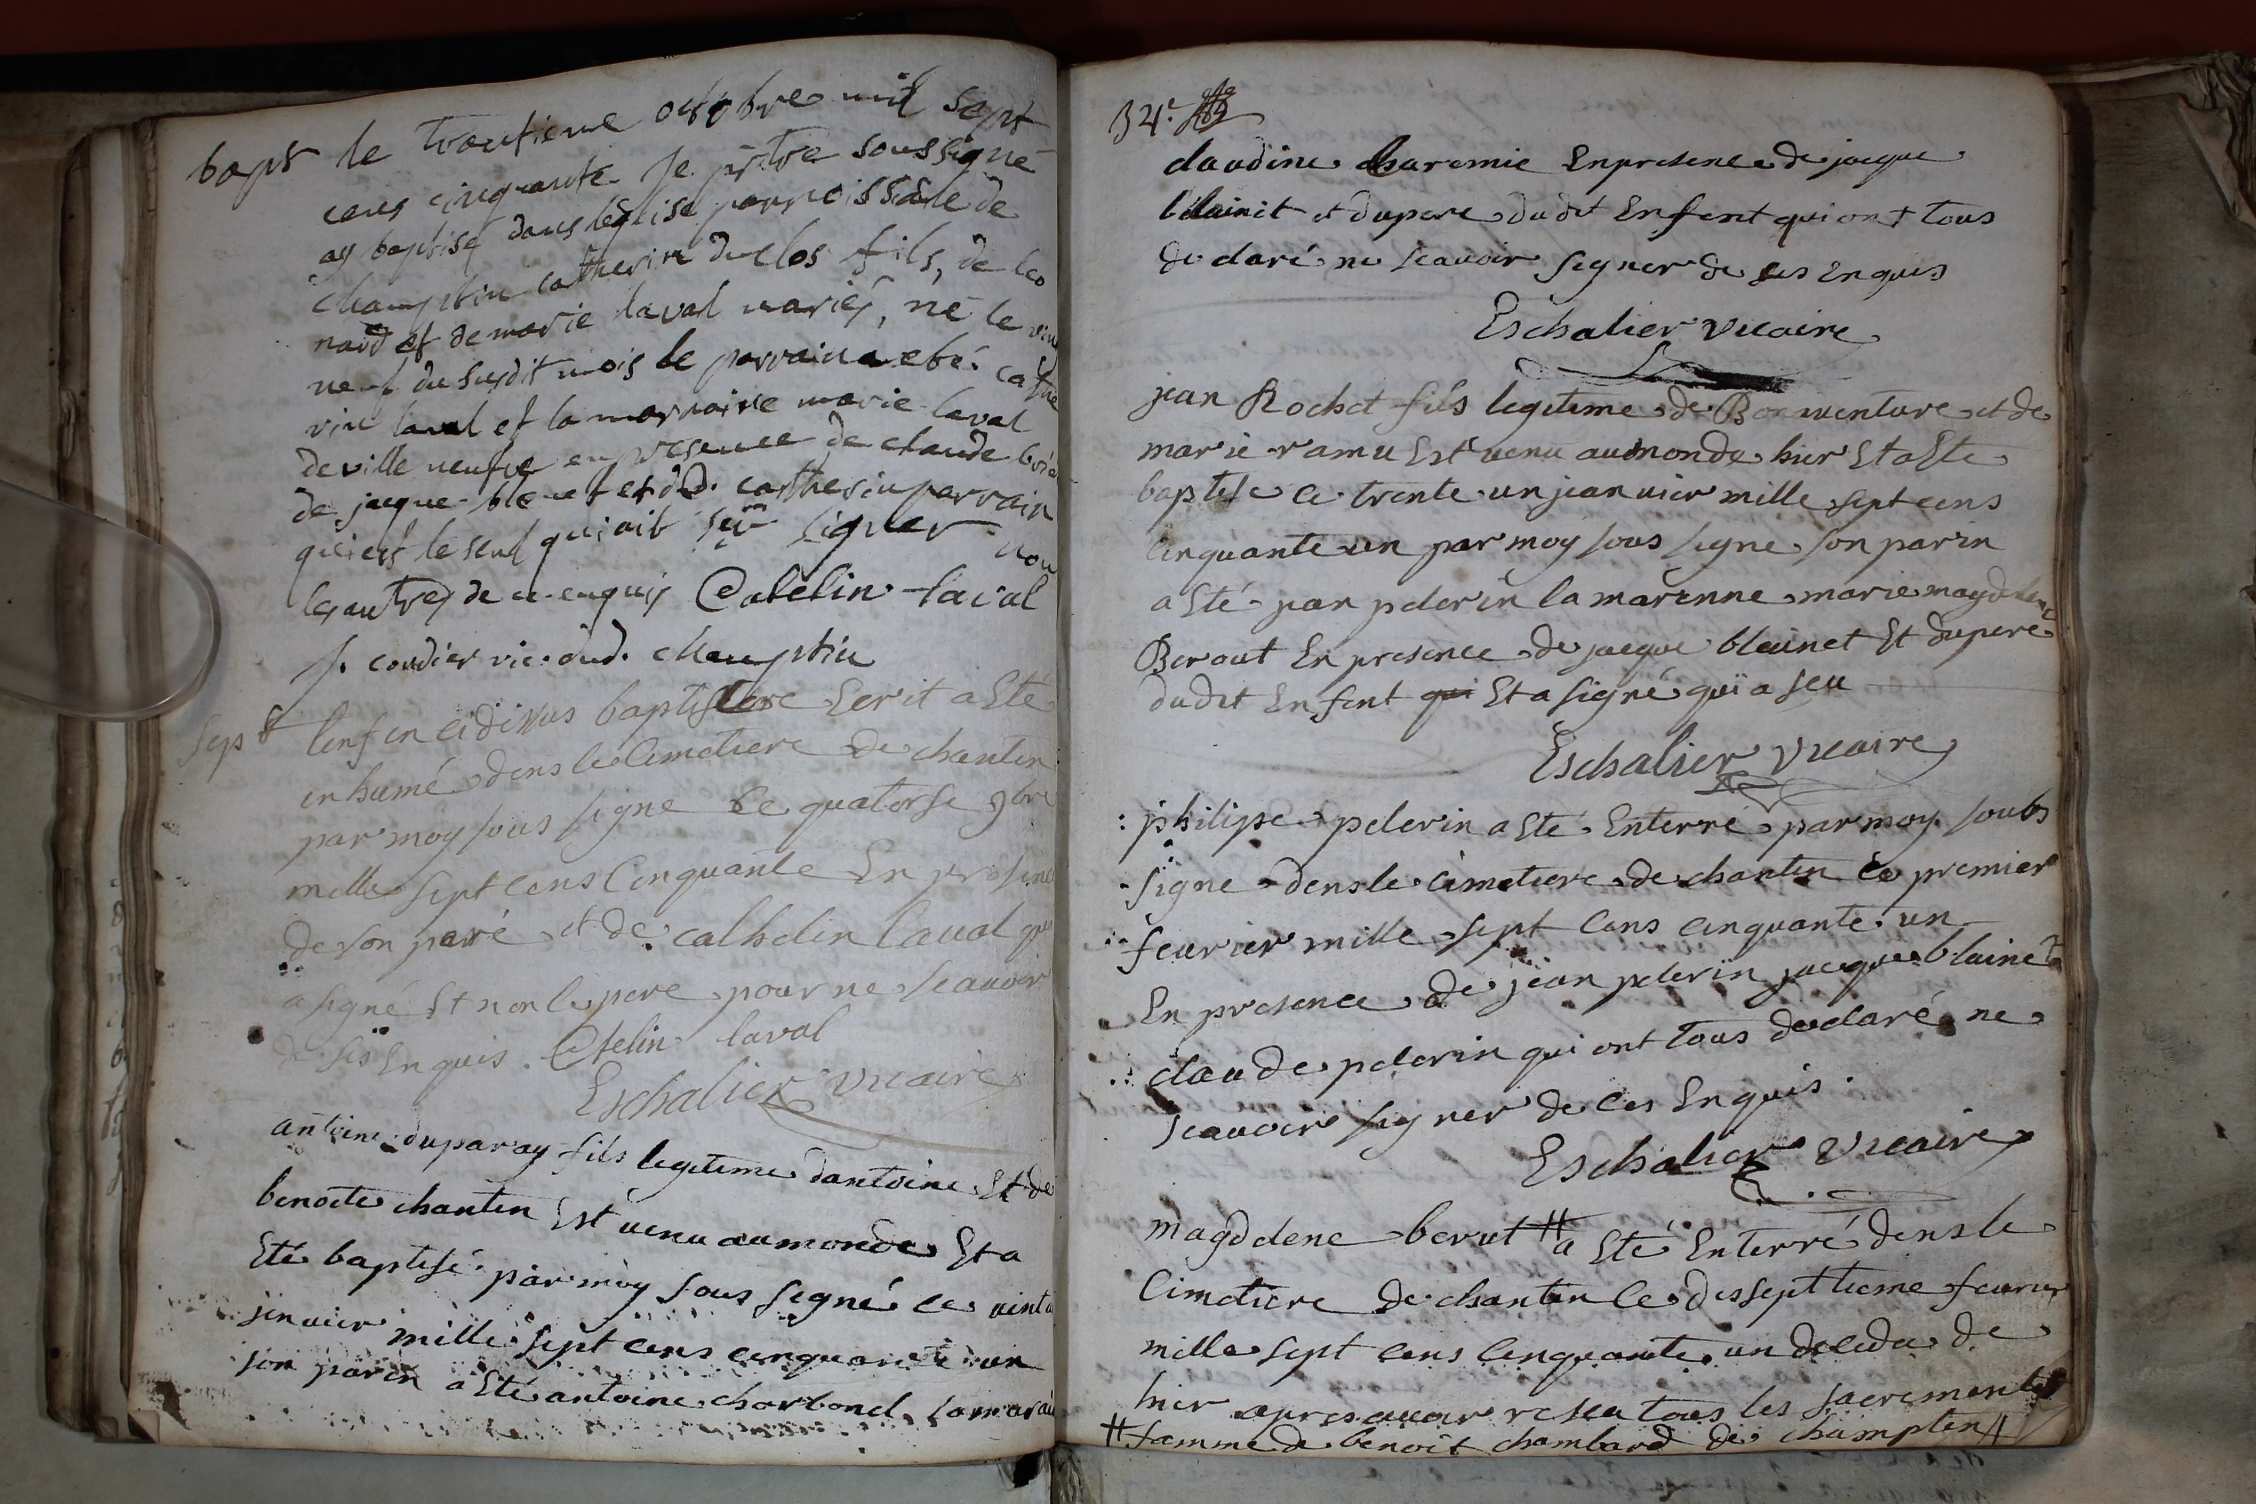 bapt le trentieme octobre mil sept
cens cinquante Je prtre soussigné
ay baptisé dans léglise parroissiale de
champtin catherin duclos fils, de leo
nard et de marie laval mariés, né le vint
neuf du susdit mois le parrain a ebé cathe
rin laval et la marraine marie laval
de ville neufve en presence de claude
de jacque blenet et dud. catherin parrain
qui est le seul qui ait sçu signer non
les autres de ce enquis Catelin laval
J. coudier vic. dud. champtin
sept lenfen ci divus baptistere Ecrit a Eté
in humé dens le Cimetiere de chantin
par moy sous signe ce quatorse 9bre
mille sept cens cinquante En presence
de son pere et de cathelin laval qui
a signé Et non le pere pour ne scauoir
de ses Enquis. Catelin laval
Eschalier vicaire
antoine duparay fils legitime dantoine Et de
benoite chantin Est venu au monde Et a
Eté baptisé par moy sous signé ce vint
jenvier mille sept cens cinquante un
son parin a Eté antoine charbonel la mara
34.e
claudine charemie En presence de jacque
blainet et du pere du dt Enfent qui ont tous
de claré ne scauoir signer de ces enquis
Eschalier vicaire
jean Rochet fils legitime de Bonaventure et de
marie ramu Est venu au monde hier Et a Eté
baptisé ce trente un jeanvier mille sept cens
cinquante un par moy sous signe son parin
a Eté jean pelerin la marenne marie magdelene
Berout En presence de jacque blainet Et du pere
dudit Enfent qui Et a signé qui a seu
Eschalier vicaire
: philipe pelerin a Eté Enterré par moy soubs
signe dens le cimetiere de chantin ce premier
feurier mille sept cens cinquante un
En presence de jean pelerin jacque blainet
claude pelerin qui ont tous declaré ne
scauoir signer de ces Enquis.
Eschalier vicaire
magdelene berut # a Eté Enterré dens le
Cimetiere de chantin ce dissepttieme feurier
mille sept cens cinquante un decedée de
hier apres auoir reseu tous les sacrements
# famme de benoit chambard de champtin #